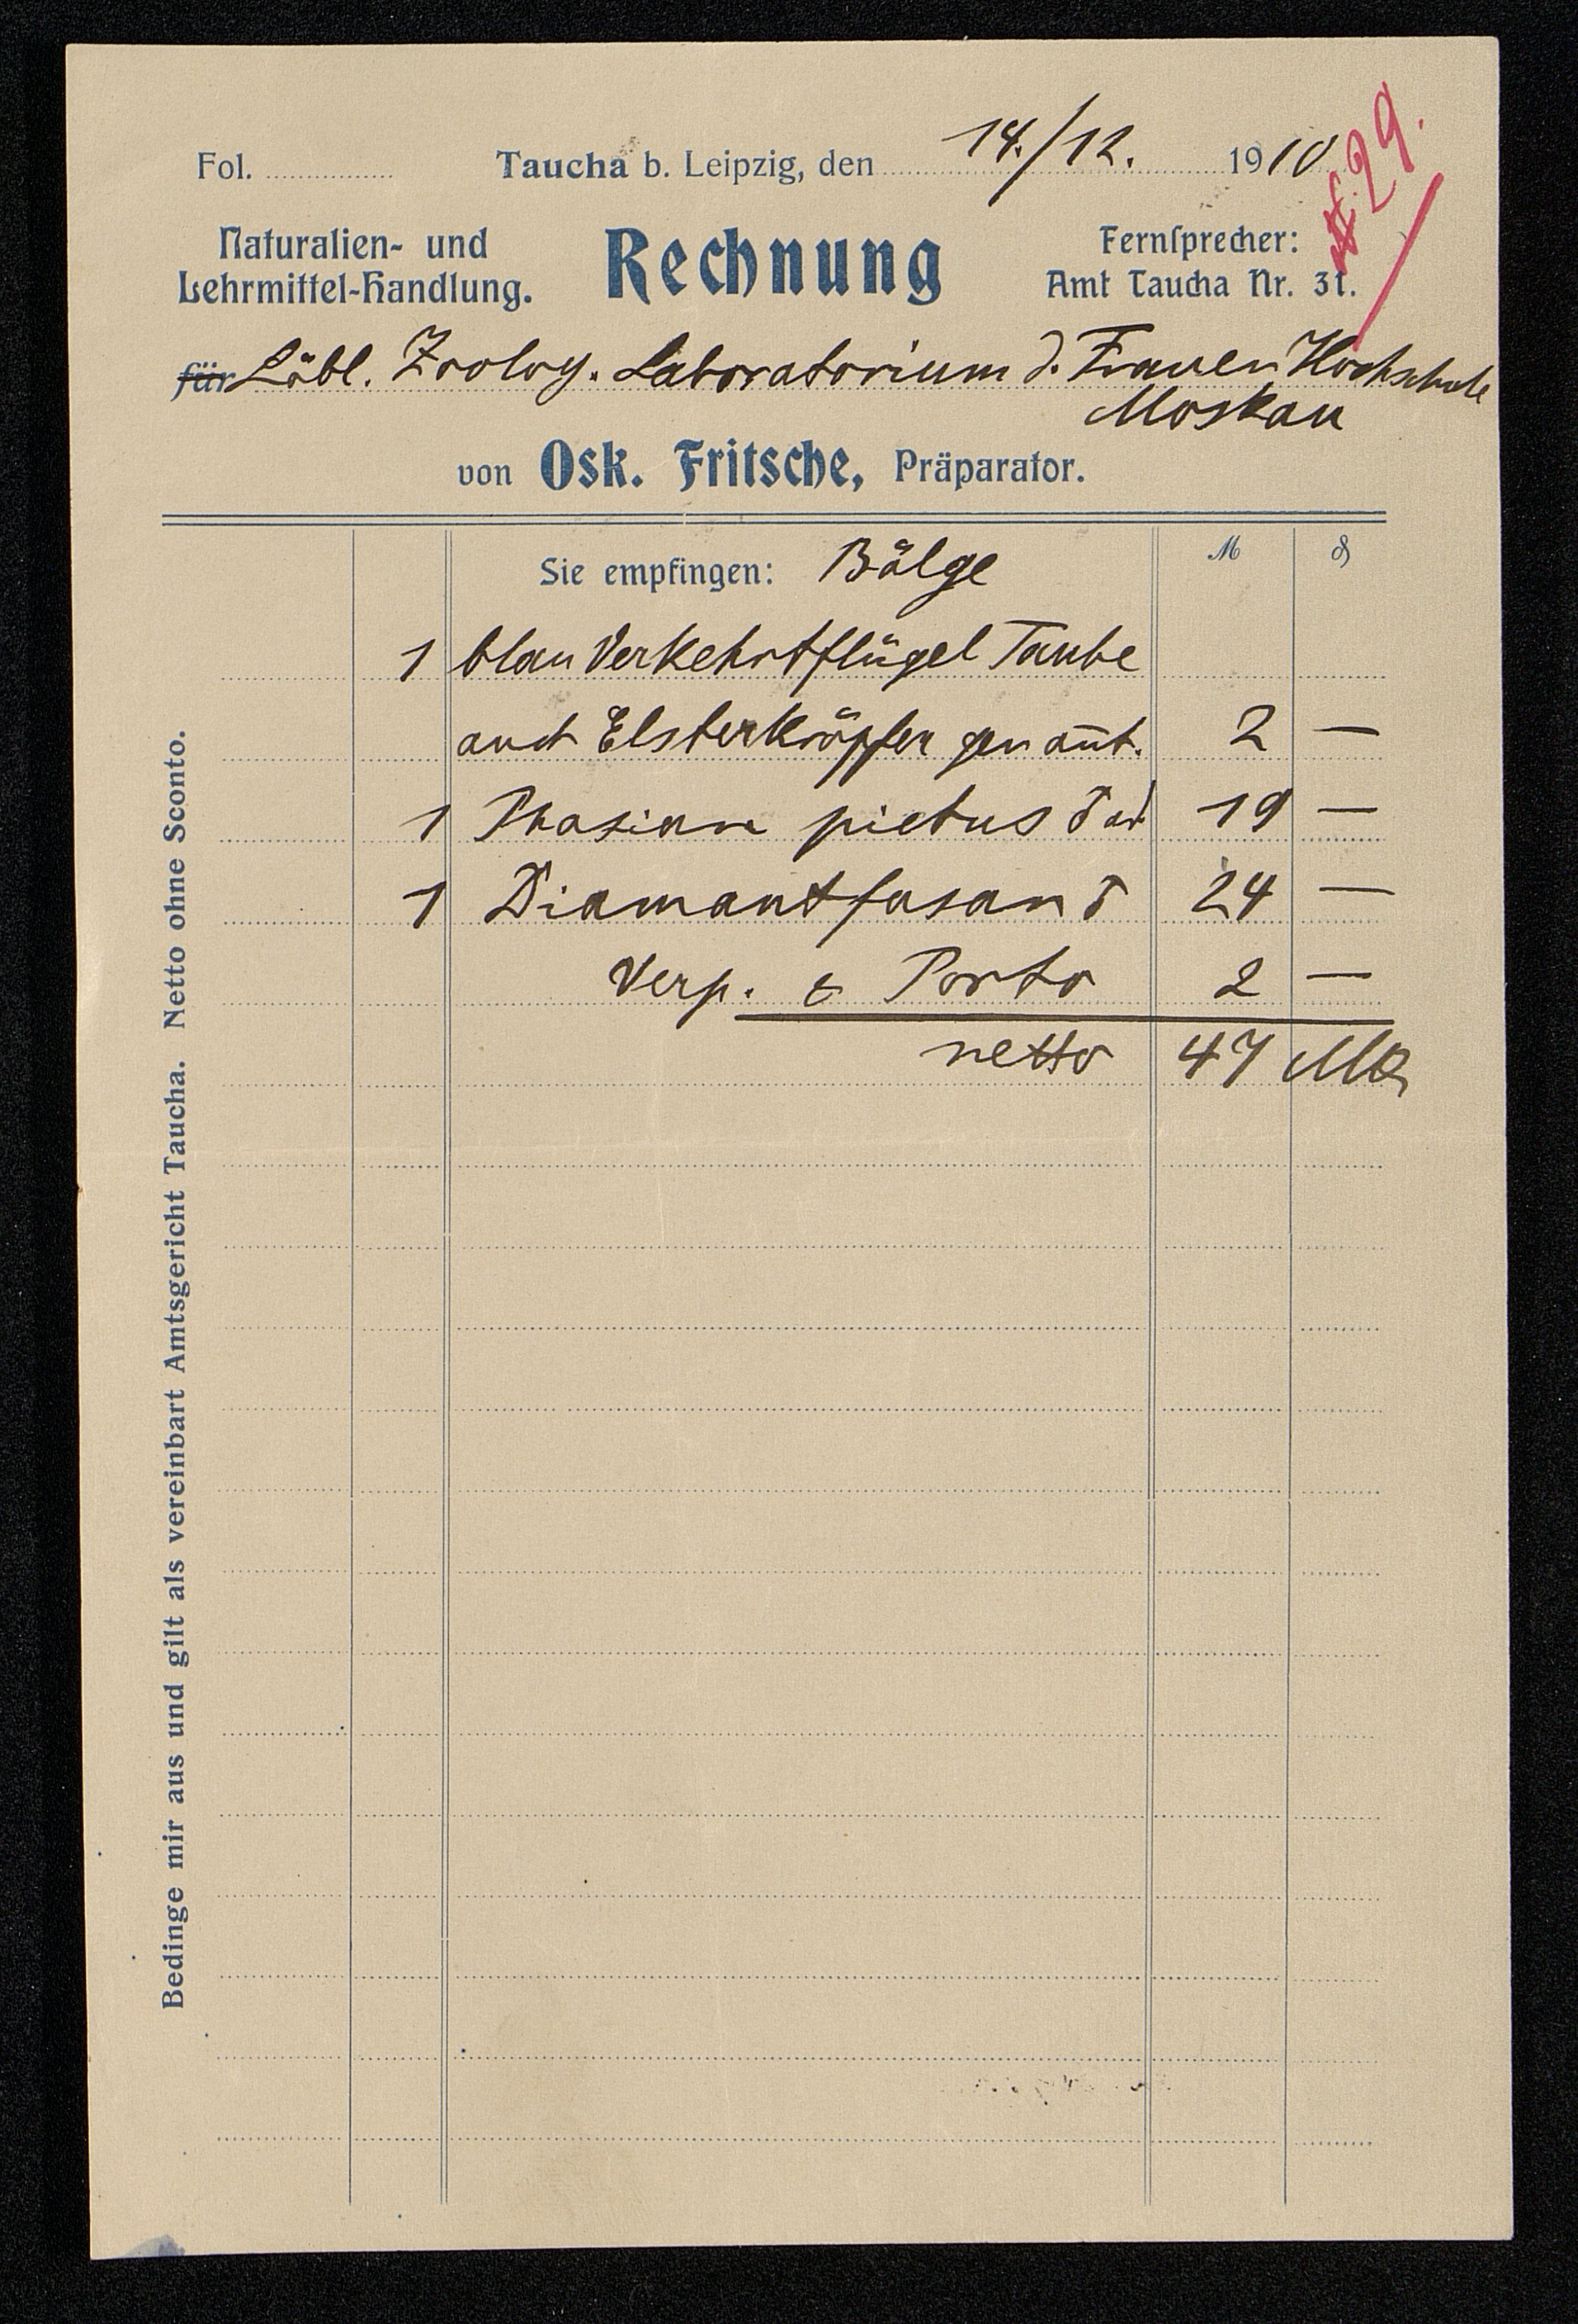 Fol. ............ Taucha b. Leipzig, den 14./12. 1910
№ 29.
Naturalien- und
Lehrmittel-Handlung.
Rechnung
Fernsprecher:
Amt Taucha Nr. 31.
für Löbl. Zoolog. Laboratorium d. Frauen Hochschule
Moskau
von Osk. Fritsche, Präparator.
Sie empfingen: Bälge M ₰
1 blau Verkehrtflügel Taube
auch Elsterkröpfer genannt. 2 —
1 Phasian pictus ♂ ad 19 —
1 Diamantfasan ♂ 24 —
Verp. & Porto 2 —
netto 47 Mk
Bedinge mir aus und gilt als vereinbart Amtsgericht Taucha. Netto ohne Sconto.